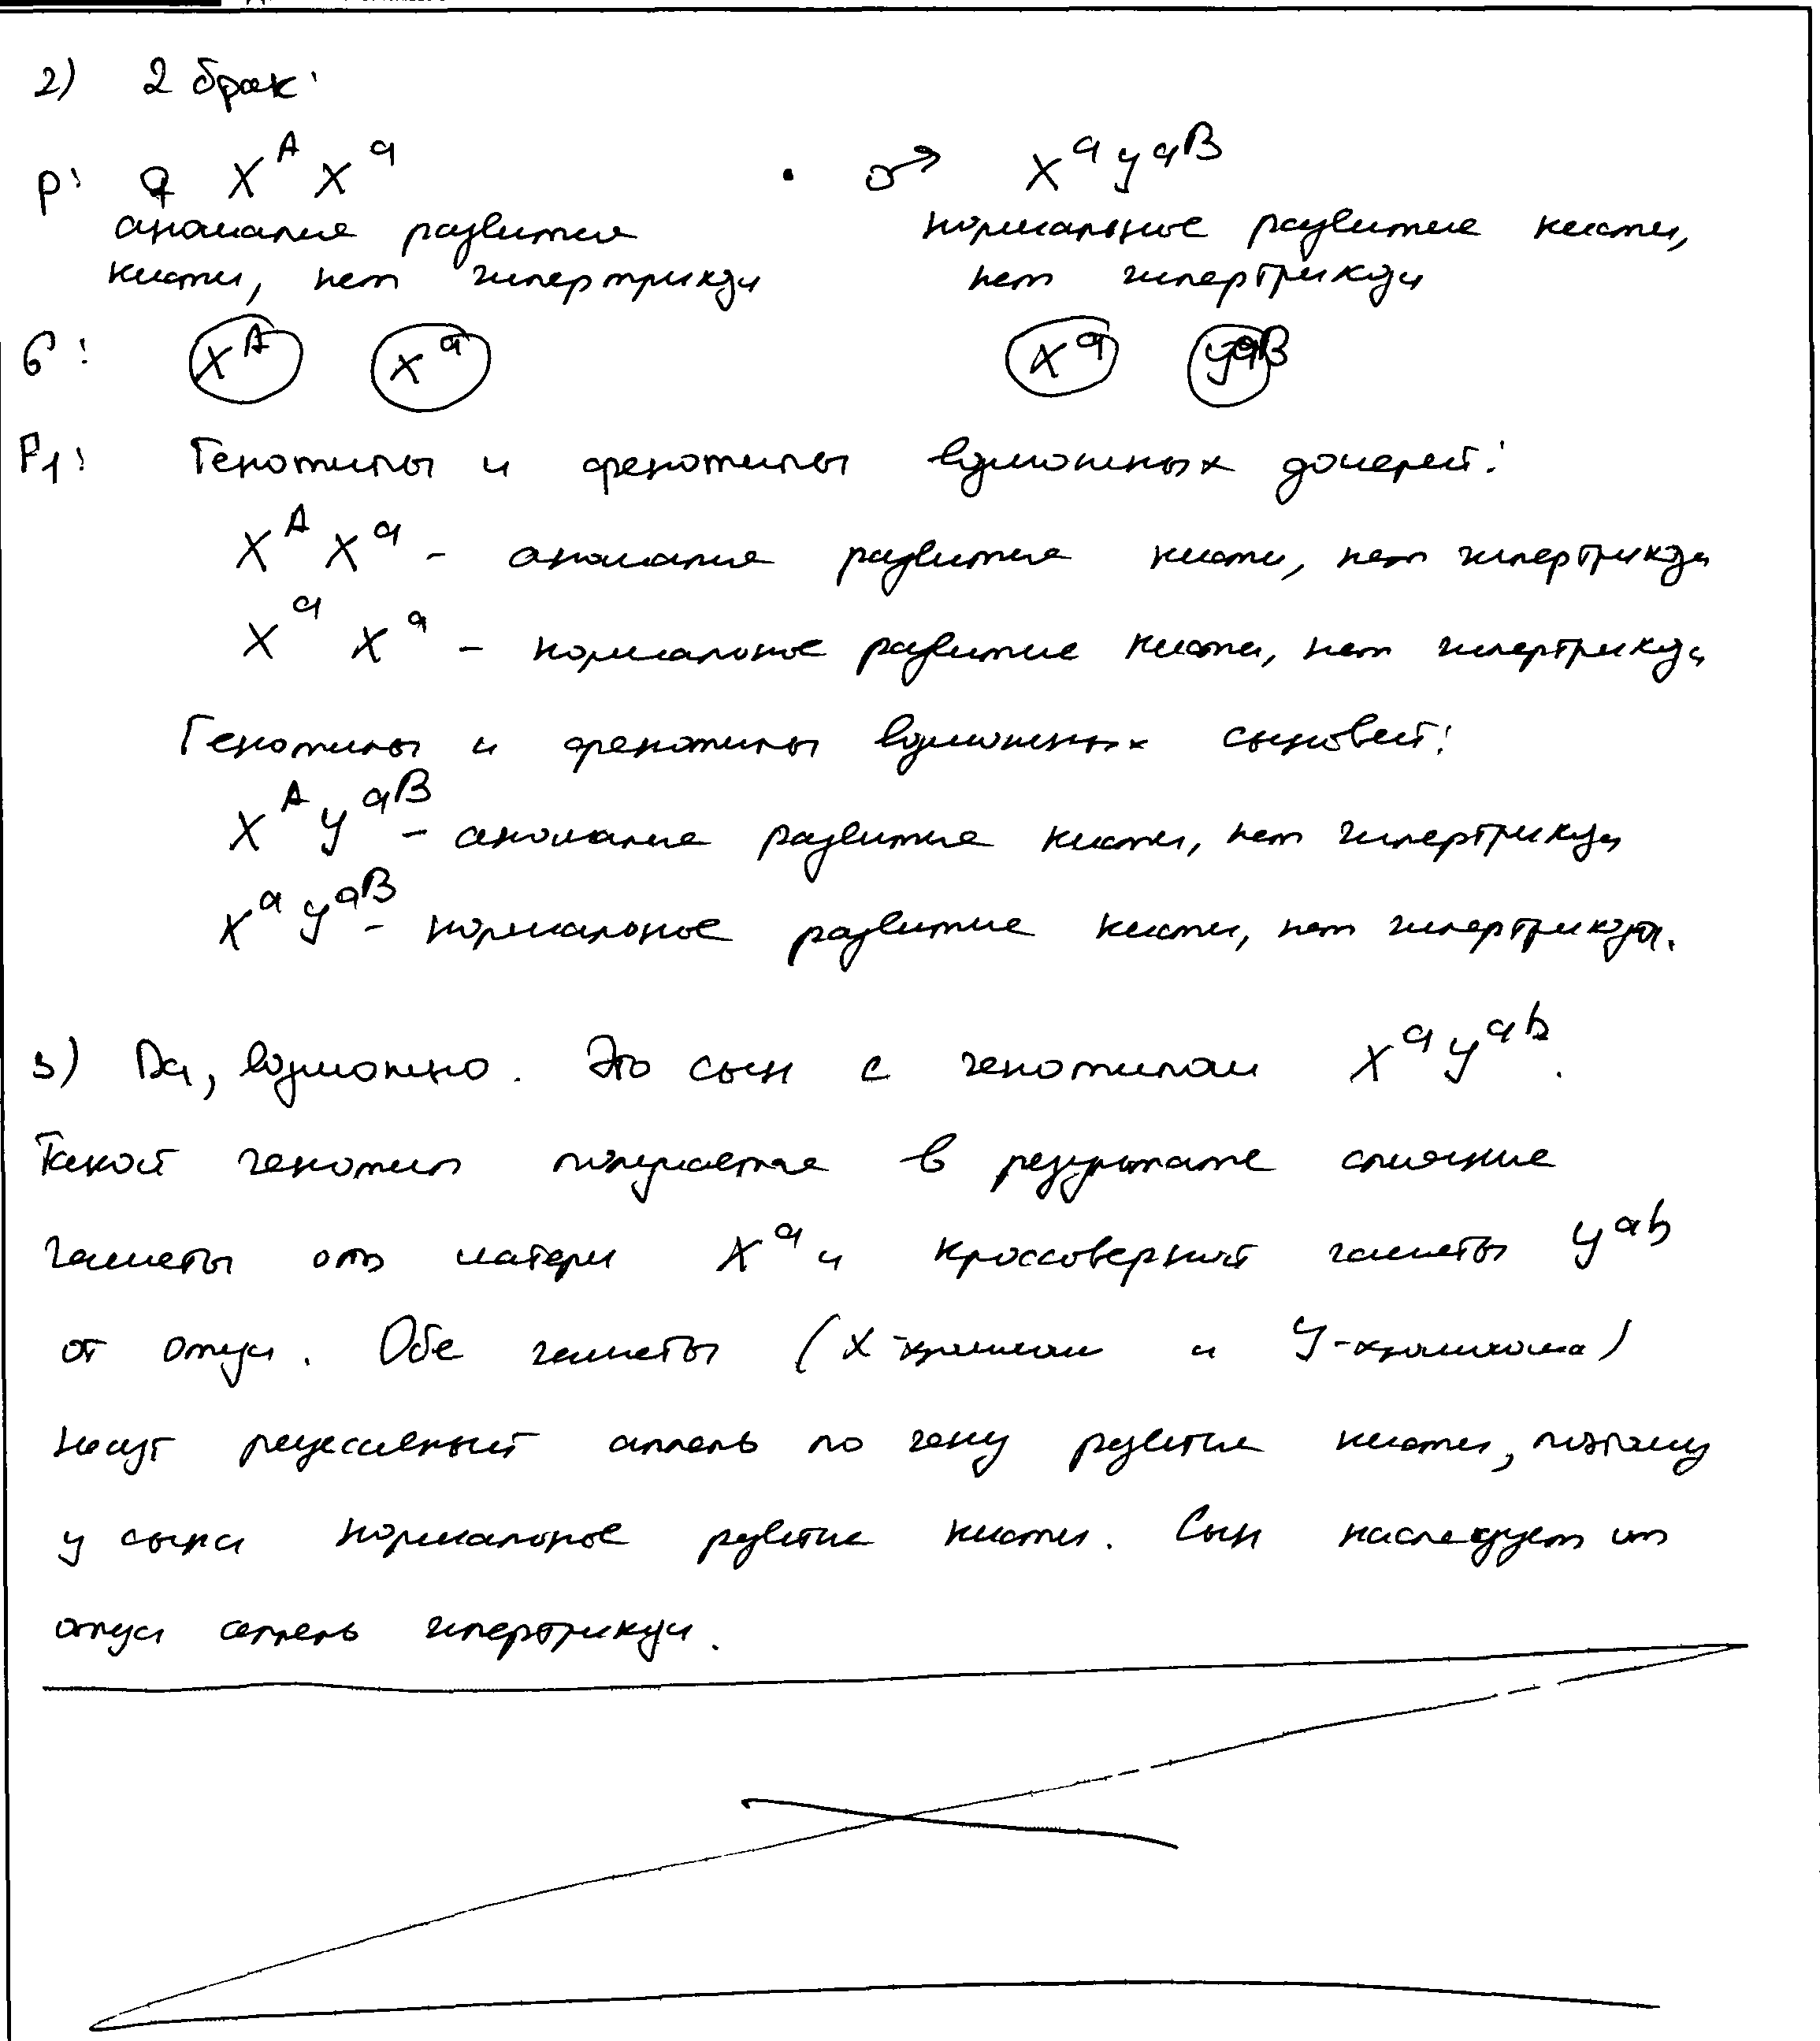 2) 2 брак:
P: ♀ X^A X^a · ♂ X^a y^aB
аномалия развития нормальное развитие кисти,
кисти, нет гипертрихоза нет гипертрихоза
G: X^A X^a X^a y^aB
F1: Генотипы и фенотипы возможных дочерей:
X^A X^a - аномалия развития кисти, нет гипертрихоза
X^a X^a - нормальное развитие кисти, нет гипертрихоза
Генотипы и фенотипы возможных сыновей:
X^A y^aB - аномалия развития кисти, нет гипертрихоза
X^a y^aB - нормальное развитие кисти, нет гипертрихоза.
3) Да, возможно. Это сын с генотипом X^a y^ab.
Такой генотип получается в результате слияния
гаметы от матери X^a и кроссоверной гаметы y^ab
от отца. Обе гаметы (X- и Y-хромосома)
несут рецессивный аллель по гену развития кисти, поэтому
у сына нормальное развитие кисти. Сын наследует от
отца аллель гипертрихоза.